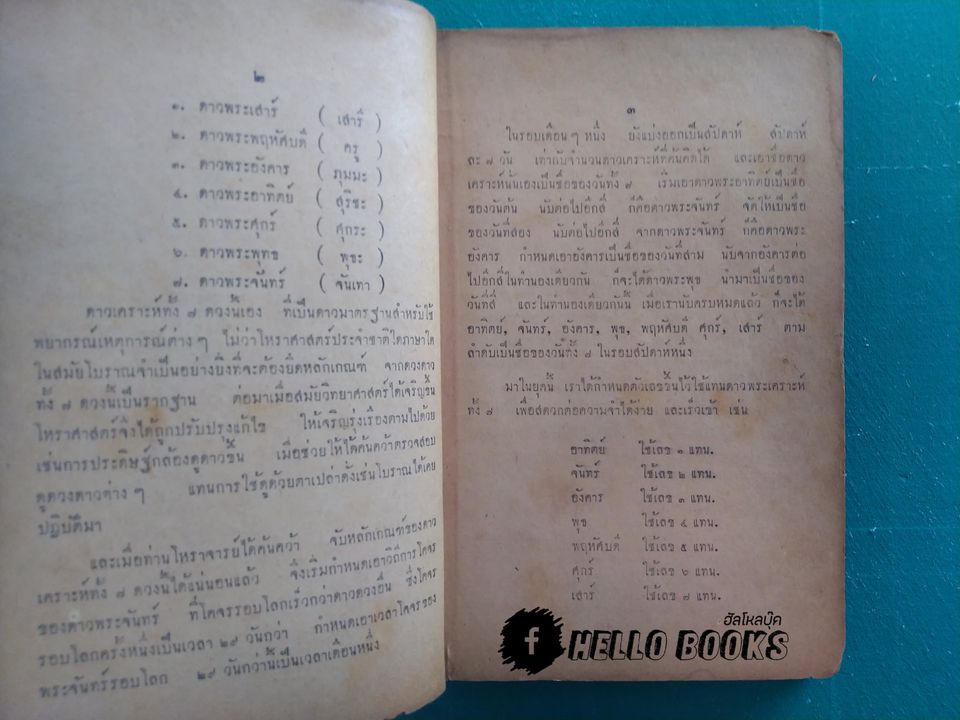 ๒
๑. ดาวพระเสาร์ ( เสารี )
๒. ดาวพระพฤหัศบดี ( ครู )
๓. ดาวพระอังคาร ( ภุมมะ )
๔. ดาวพระอาทิตย์ ( สุริชะ )
๕. ดาวพระศุกร์ ( ศุกระ )
๖. ดาวพระพุทธ ( พุธะ )
๗. ดาวพระจันทร์ ( จันเทา )
ดาวเคราะห์ทั้ง ๗ ดวงนี้เอง ที่เป็นดาวมาตรฐานสำหรับใช้
พยากรณ์เหตุการณ์ต่าง ๆ ไม่ว่าโหราศาสตร์ประจำชาติใดภาษาใด
ในสมัยโบราณจำเป็นอย่างยิ่งที่จะต้องยึดหลักเกณฑ์ จากดวงดาว
ทั้ง ๗ ดวงนี้เป็นรากฐาน ต่อมาเมื่อสมัยวิทยาศาสตร์ได้เจริญขึ้น
โหราศาสตร์จึงได้ถูกปรับปรุงแก้ไข ให้เจริญรุ่งเรื่องตามไปด้วย
เช่นการประดิษฐ์กล้องดูดาวขึ้น เมื่อช่วยให้ได้ค้นคว้าตรวจสอบ
ดูดวงดาวต่าง ๆ แทนการใช้ดูด้วยตาเปล่าดั่งเช่นโบราณได้เคย
ปฏิบัติมา
และเมื่อท่านโหราจารย์ได้ค้นคว้า จับหลักเกณฑ์ของดาว
เคราะห์ทั้ง ๗ ดวงนี้ได้แน่นอนแล้ว จึงเริ่มกำหนดเอาวิถีการโคจร
ของดาวพระจันทร์ ที่โคจรรอบโลกเร็วกว่าดาวดวงอื่น ซึ่งโคจร
รอบโลกครั้งหนึ่งเป็นเวลา ๒๙ วันกว่า กำหนดเอาเวลาโคจรของ
พระจันทร์รอบโลก ๒๙ วันกว่านี้เป็นเวลาเดือนหนึ่ง
๓
ในรอบเดือน ๆ หนึ่ง ยังแบ่งออกเป็นสัปดาห์ สัปดาห์
ละ ๗ วัน เท่ากับจำนวนดาวเคราะห์ที่ค้นคิดได้ และเอาชื่อดาว
เคราะห์นั้นเองเป็นชื่อของวันทั้ง ๗ เริ่มเอาดาวพระอาทิตย์เป็นชื่อ
ของวันต้น นับต่อไปอีกสี่ ก็คือดาวพระจันทร์ จัดให้เป็นชื่อ
ของวันที่สอง นับต่อไปอีกสี่ จากดาวพระจันทร์ ก็คือดาวพระ
อังคาร กำหนดเอาอังคารเป็นชื่อของวันที่สาม นับจากอังคารต่อ
ไปอีกสี่ในทำนองเดียวกัน ก็จะได้ดาวพระพุธ นำมาเป็นชื่อของ
วันที่สี่ และในทำนองเดียวกันนี้ เมื่อเรานับครบหมดแล้ว ก็จะได้
อาทิตย์, จันทร์, อังคาร, พุธ, พฤหัศบดี ศุกร์, เสาร์ ตาม
ลำดับเป็นชื่อของวันทั้ง ๗ ในรอบสัปดาห์หนึ่ง
มาในยุคนี้ เราได้กำหนดตัวเลขขึ้นไว้ใช้แทนดาวพระเคราะห์
ทั้ง ๗ เพื่อสดวกต่อความจำได้ง่าย และเร็วเข้า เช่น
อาทิตย์ ใช้เลข ๑ แทน.
จันทร์ ใช้เลข ๒ แทน.
อังคาร ใช้เลข ๓ แทน.
พุธ ใช้เลข ๔ แทน.
พฤหัศบดี ใช้เลข ๕ แทน.
ศุกร์ ใช้เลข ๖ แทน.
เสาร์ ใช้เลข ๗ แทน.
ฮัลโหลบุ๊ค
f HELLO BOOKS